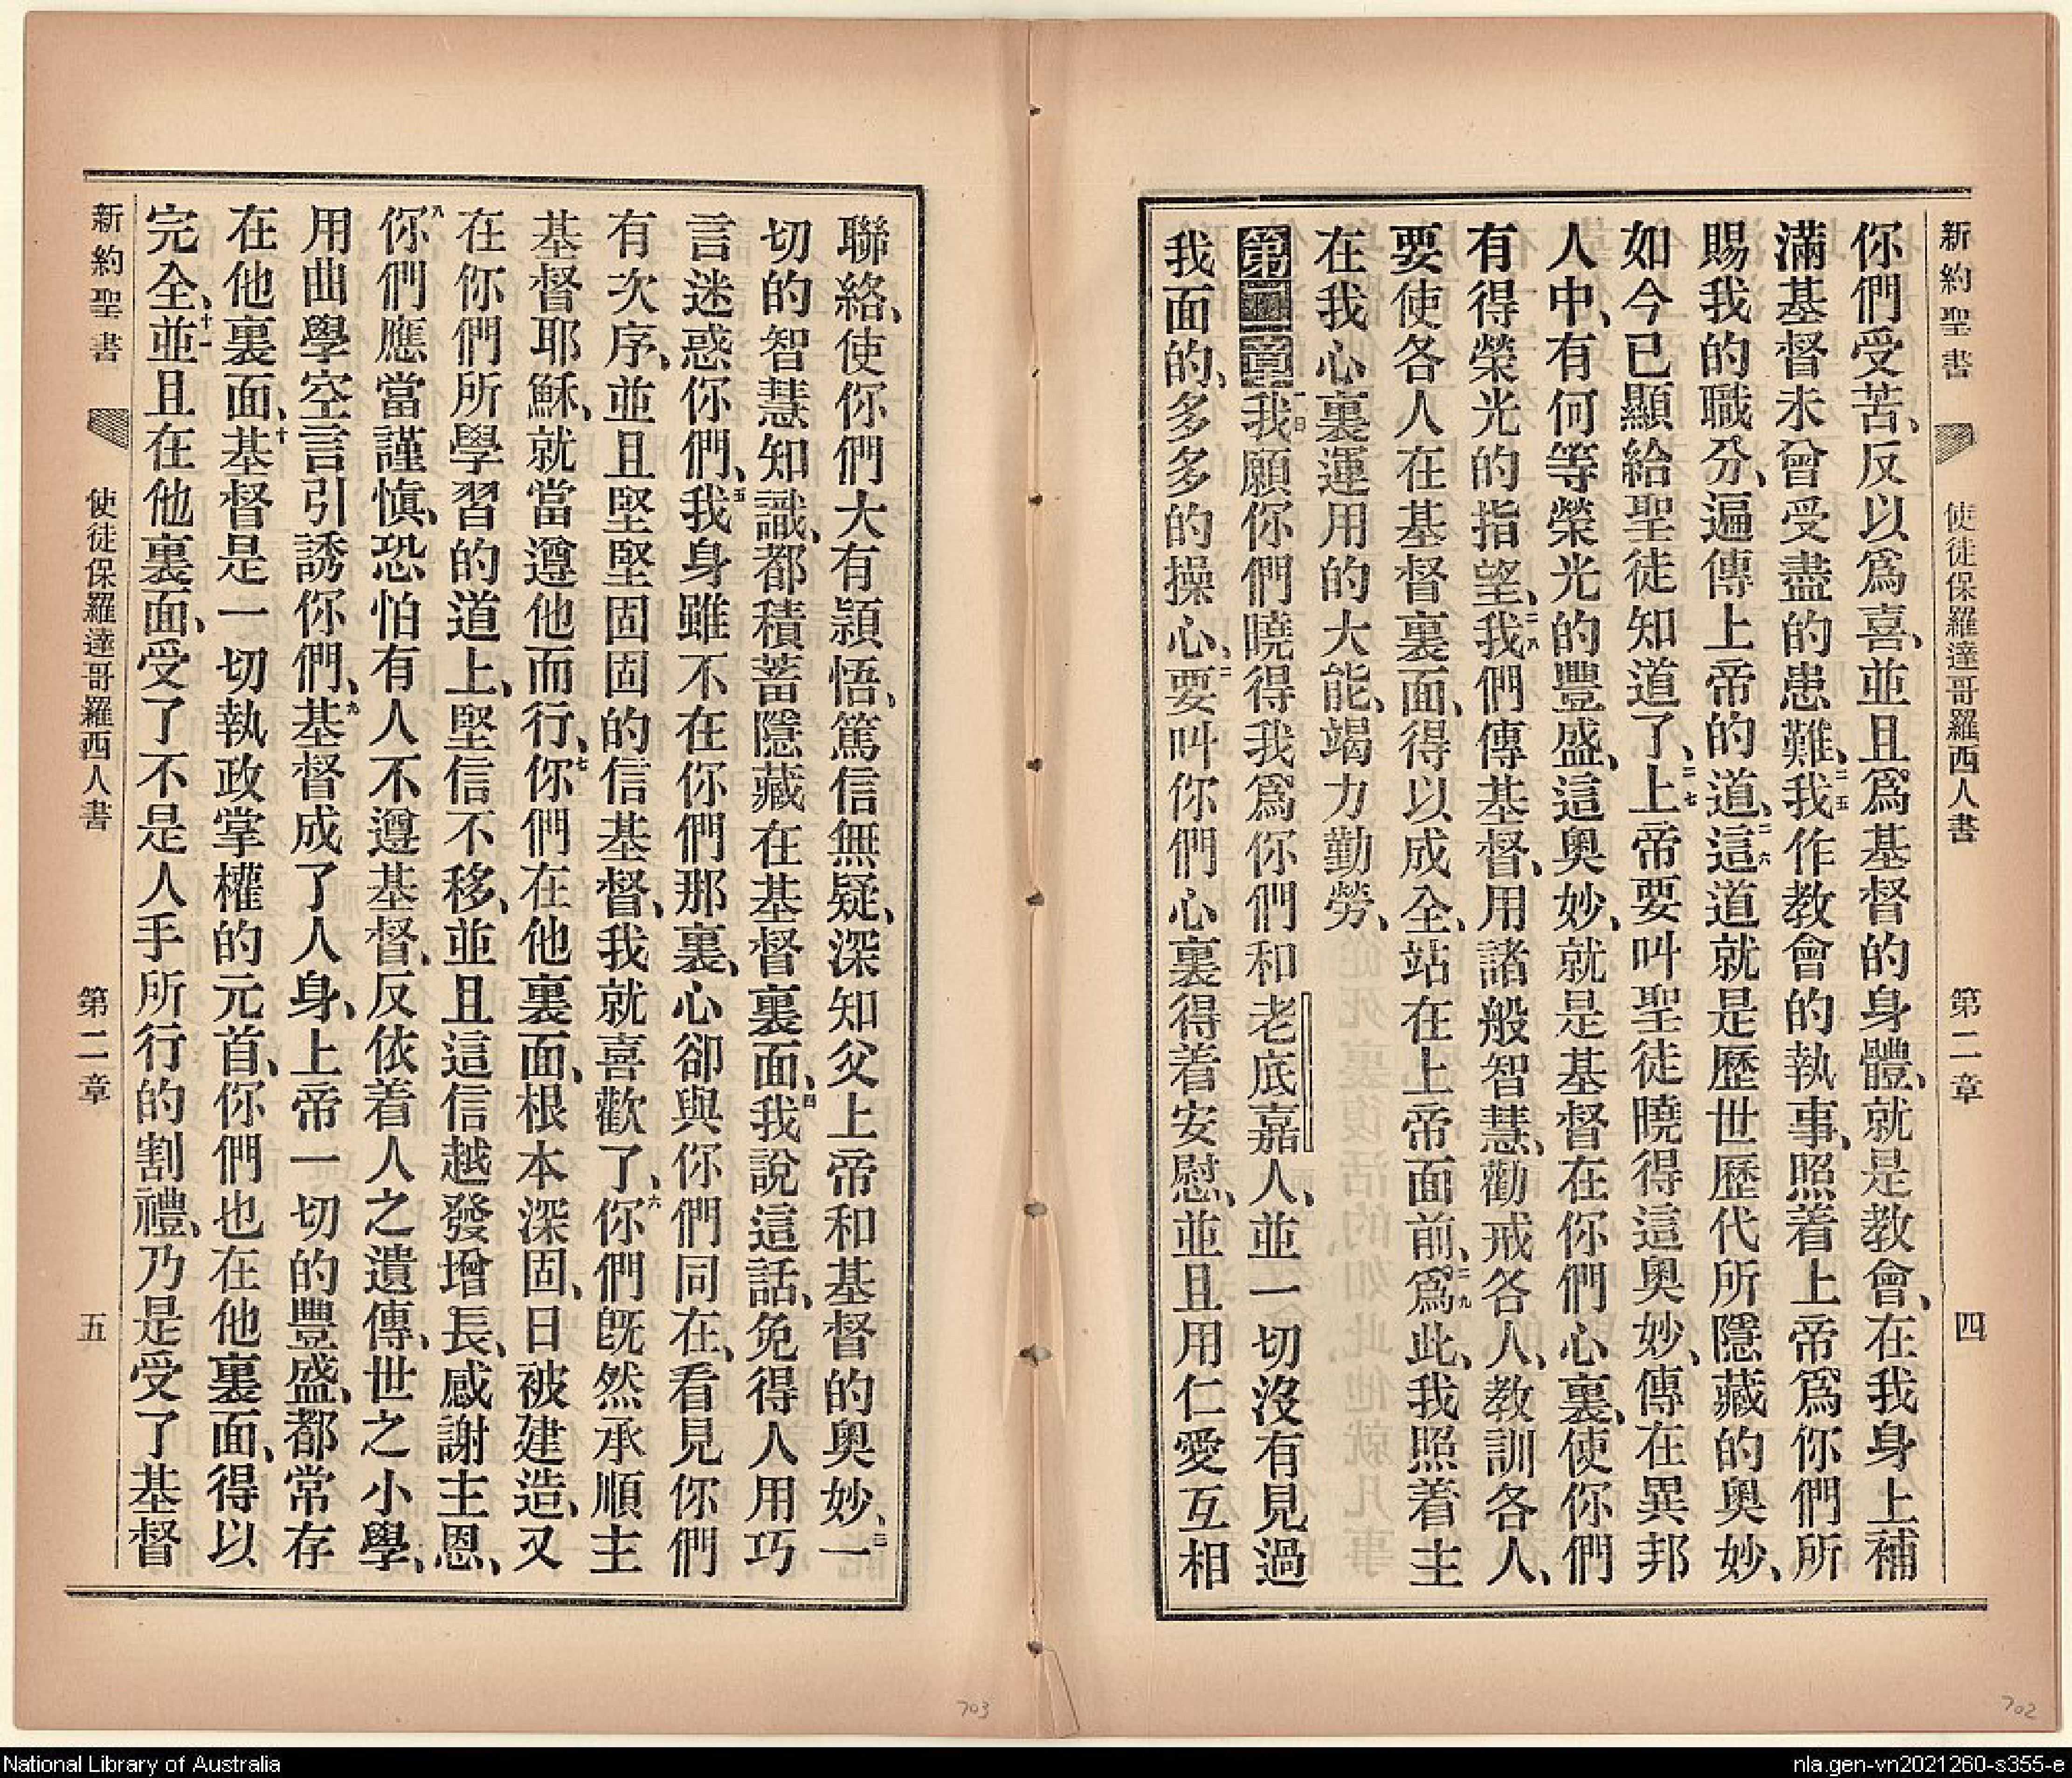 新約聖書 使徒保羅達哥羅西人書 第二章 四
你們受苦、反以爲喜、並且爲基督的身體、就是教會、在我身上補
滿基督未曾受盡的患難、二五我作教會的執事、照着上帝爲你們所
賜我的職分、遍傳上帝的道、二六這道就是歷世歷代所隱藏的奧妙、
如今已顯給聖徒知道了、二七上帝要叫聖徒曉得這奧妙、傳在異邦
人中、有何等榮光的豐盛、這奧妙、就是基督在你們心裏、使你們
有得榮光的指望、二八我們傳基督、用諸般智慧、勸戒各人、教訓各人、
要使各人在基督裏面、得以成全、站在上帝面前、二九爲此、我照着主
在我心裏運用的大能、竭力勤勞、
第二章一曰我願你們曉得我爲你們和老底嘉人、並一切沒有見過
我面的、多多的操心、二要叫你們心裏得着安慰、並且用仁愛互相
聯絡、使你們大有頴悟、篤信無疑、深知父上帝和基督的奧妙、三一
切的智慧知識、都積蓄隱藏在基督裏面、四我說這話、免得人用巧
言迷惑你們、五我身雖不在你們那裏、心卻與你們同在、看見你們
有次序、並且堅堅固固的信基督、我就喜歡了、六你們旣然承順主
基督耶穌、就當遵他而行、七你們在他裏面、根本深固、日被建造、又
在你們所學習的道上、堅信不移、並且這信越發增長、感謝主恩、
八你們應當謹愼、恐怕有人不遵基督、反依着人之遺傳、世之小學、
用曲學空言引誘你們、九基督成了人身、上帝一切的豐盛、都常存
在他裏面、十基督是一切執政掌權的元首、你們也在他裏面、得以
完全、十一並且在他裏面、受了不是人手所行的割禮、乃是受了基督
新約聖書 使徒保羅達哥羅西人書 第二章 五
703
702
National Library of Australia
nla.gen-vn2021260-s355-e